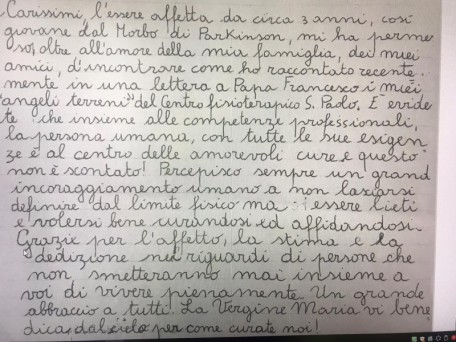 Carissimi, l'essere affetta da circa 3 anni, così
giovane dal Morbo di Parkinson, mi ha perme
so, oltre all'amore della mia famiglia, dei miei
amici, d'incontrare come ho raccontato recente.
mente in una lettera a Papa Francesco i miei
"angeli terreni" del Centro fisioterapico S. Paolo. E' evide
te che insieme alle competenze professionali,
la persona umana, con tutte le sue esigen
ze è al centro delle amorevoli cure e questo
non è scontato! Percepisco sempre un grand
incoraggiamento umano a non lasciarsi
definire dal limite fisico ma : essere lieti
e volersi bene curandosi ed affidandosi.
Grazie per l'affetto, la stima e la
dedizione nei riguardi di persone che
non smetteranno mai insieme a
voi di vivere pienamente. Un grande
abbraccio a tutti. La Vergine Maria vi bene
dica, dal cielo per come curate noi!